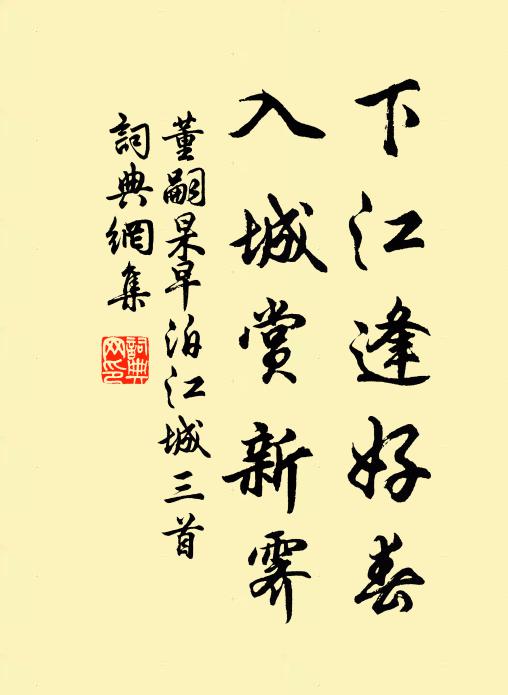 下江逢好春
入城赏新霁
董嗣杲早泊江城三首
詞典網集
詞典網印